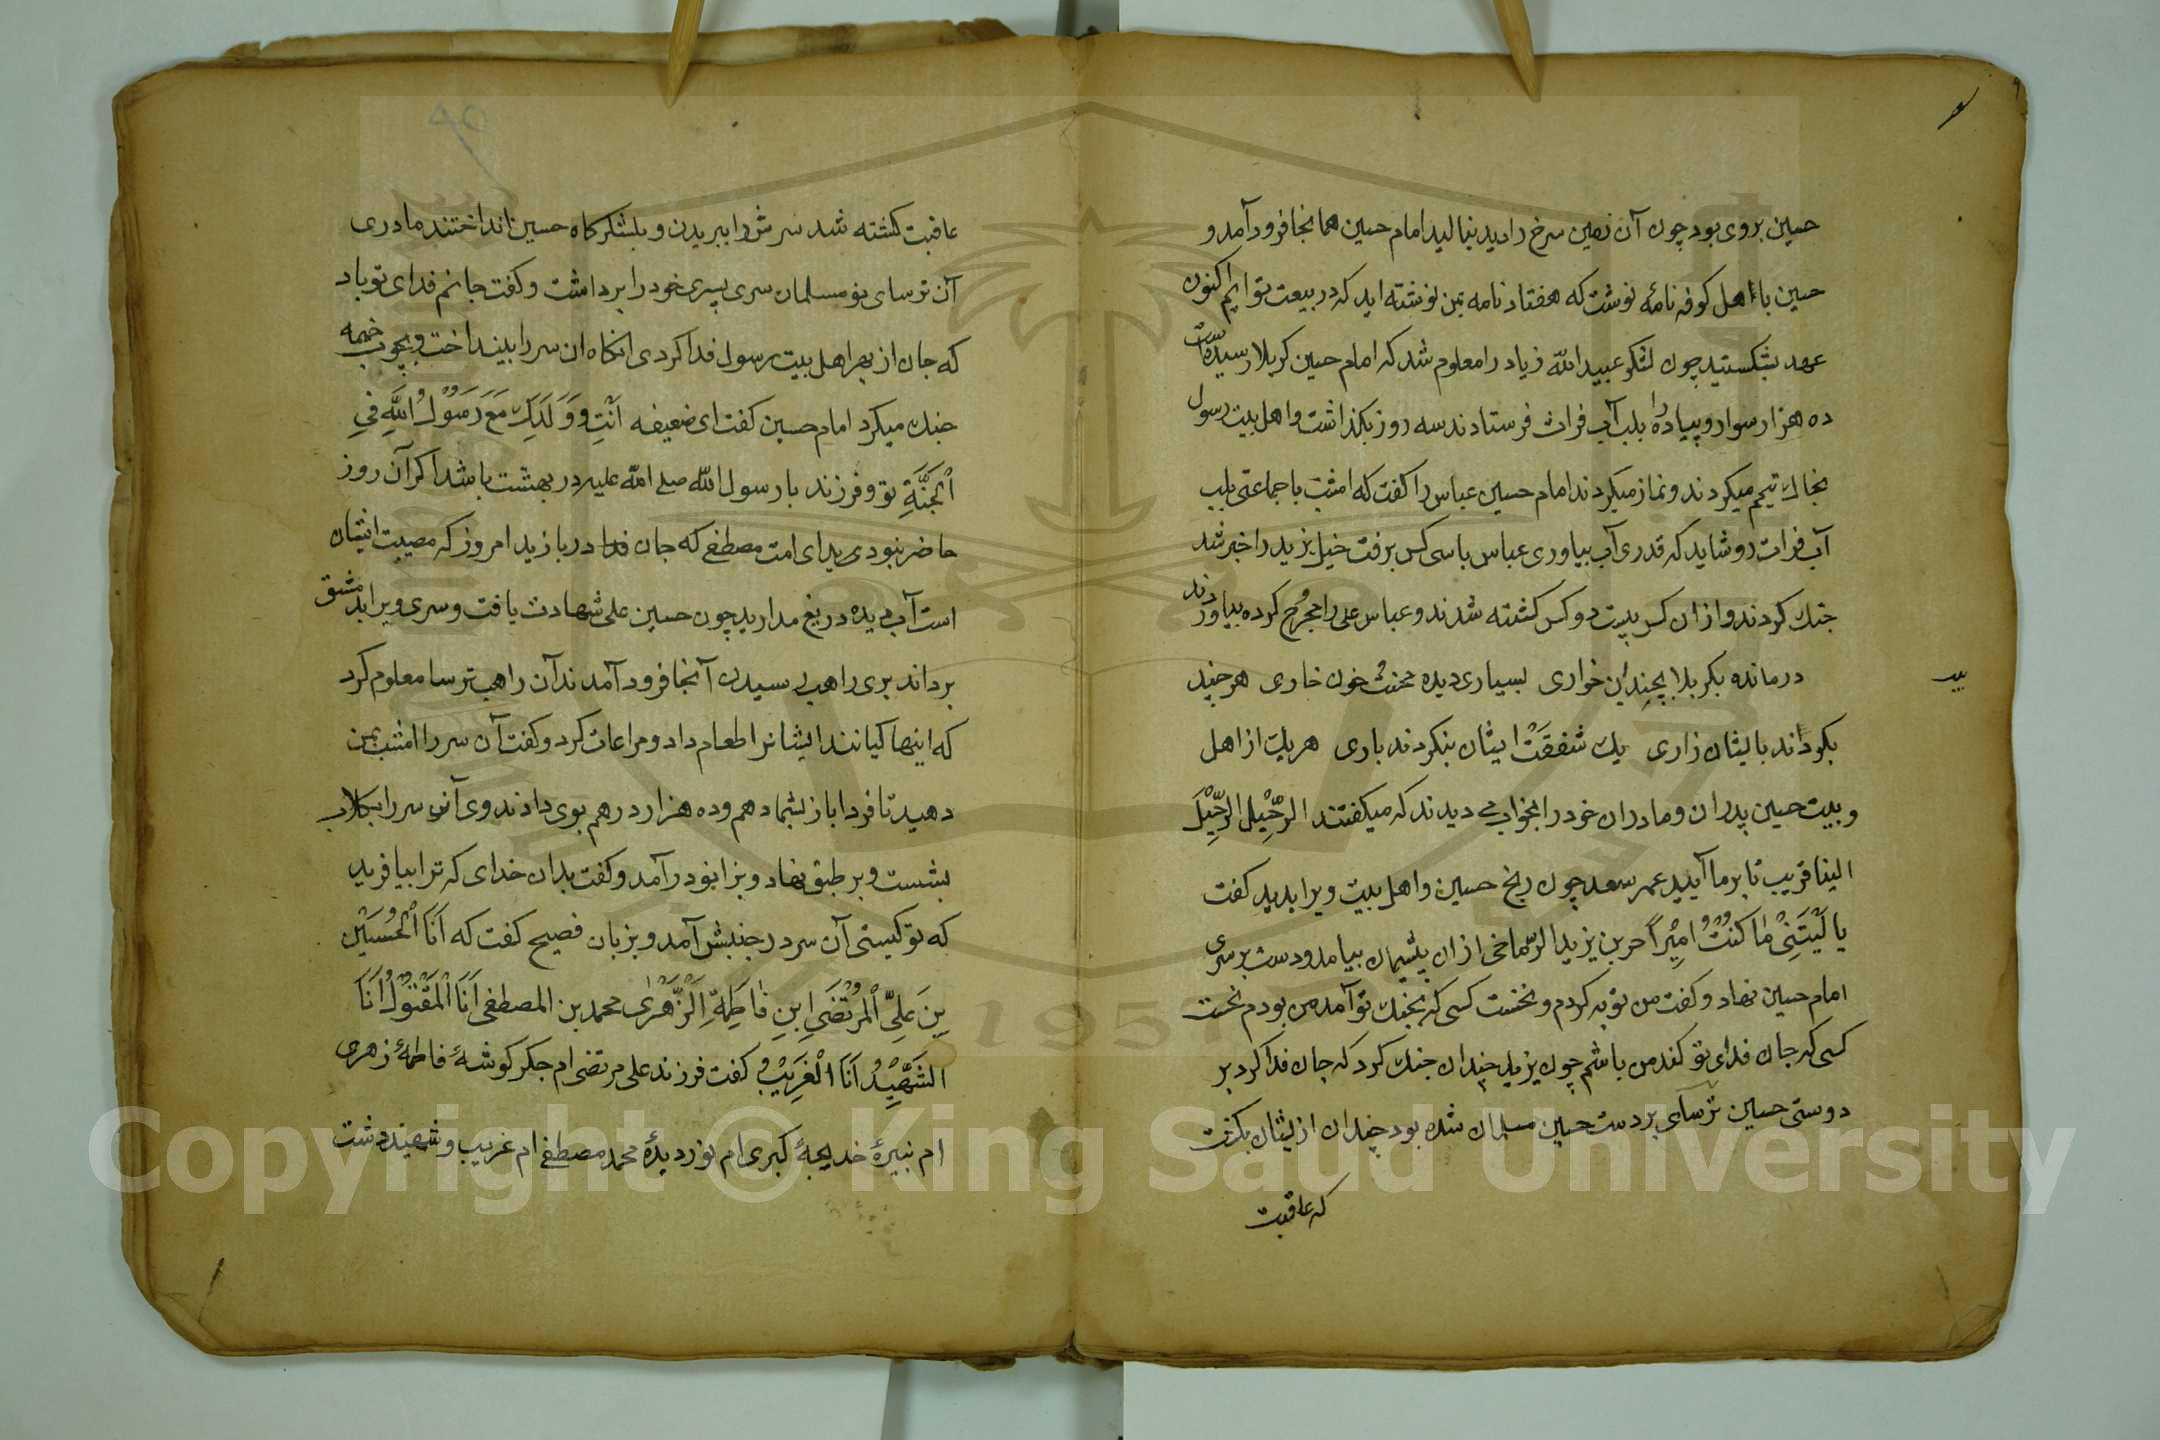 حسین بروی بود چون آن زمین سرخ را دید بنالید امام حسین همانجا فرود آمد و
حسین با اهل کوفه نامهٔ نوشت که هفتاد نامه بمن نوشته اید که در بیعت توایم اکنون
عهد بشکستید چون لشکر عبید الله زیاد را معلوم شد که امام حسین کربلا رسیده است
ده هزار سوار و پیاده را بلب آب فرات فرستادند سه روز بکذاشت و اهل بیت رسول
بخاک تیمم میکردند و نماز میکردند امام حسین عباس را کفت که امشب با جماعتی بلب
آب فرات رو شاید که قدری آب بیاوری عباس با سی کس برفت خیل یزید را خبر شد
جنک کردند و ازان کس بیست دو کس کشته شدند و عباس علی را مجروح کرده بیاوردند
درمانده بکربلا بچندان خواری بسیاری دیده محنت خون خاری هر چند
بکرداند بالیشان زاری یک شفقت ایشان بنکردند باری هر یک از اهل
و بیت حسین پدران و مادران خود را بخواب می دیدند که میکفتند الرَّحِیْل الرَّحِیْلَ
الینا قریب تا بر ما آیید عمر سعد چون رنج حسین و اهل بیت ویرا بدید کفت
یا لَیْتَنِیْ مٰا کُنْتُ امِیْراً حر بن یزید الرماخی ازان پشیمان بیامد و دست بر سری
امام حسین نهاد و کفت من توبه کردم و نخست کسی که بجنک تو آمد من بودم نخست
کسی که جان فدای تو کند من باشم چون یزید چندان جنک کرد که جان فدا کرد بر
دوستی حسین ترسای بر دست حسین مسلمان شده بود چندان ازیشان بکشت
که عاقبت
عاقبت کشته شد سرش را ببریدن و بلشکرکاه حسین انداختند مادری
آن ترسای نو مسلمان سری پسری خود را برداشت و کفت جانم فدای تو باد
که جان از بهر اهل بیت رسول فدا کردی انکاه ان سر را بینداخت و بچوب خیمه
جنک میکرد امام حسین کفت ای ضعیفه اَنْتِ وَ وَلَدَکِ مَعَ رَسُوْلُ اللهِ فِی
اَلْجَنَّةِ تو و فرزند با رسول الله صلی الله علیه در بهشت باشد اکر آن روز
حاضر نبودی یدای امت مصطفی که جان فدا دربازید امروز که مصیبت ایشان
است آب دیده دریغ مدارید چون حسین علی شهادت یافت و سری ویرا بدمشق
برداند بری راهب رسیدن آنجا فرود آمدند آن راهب ترسا معلوم کرد
که اینها کیانند ایشانرا طعام داد و مراعات کرد و کفت آن سر را امشب بمن
دهید تا فردا باز بشما دهم و ده هزار درهم بوی دادند وی آن سر را بکلاب
بشست و بر طبق نهاد و بزانو درآمد و کفت بدان خدای که ترا بیافرید
که تو کیستی آن سر در جنبش آمد و بزبان فصیح کفت که اَنَا الْحُسَیْنَ
بِنَ عَلِیِّ الْمُرْتَضَی اِبنِ فٰاطِمَةِ الزَّهْرٰی محمد بن المصطفی اَنَا الْمَقْتُوْلُ اَنَا
الشَّهِیْدُ اَنَا الْغَرِیْبُ کفت فرزند علی مرتضی ام جکر کوشهٔ فاطمهٔ زهری
ام نبیرهٔ خدیجهٔ کبری ام نور دیدهٔ محمد مصطفی ام غریب و شهید دشت
Copyright © King Saud University
1957